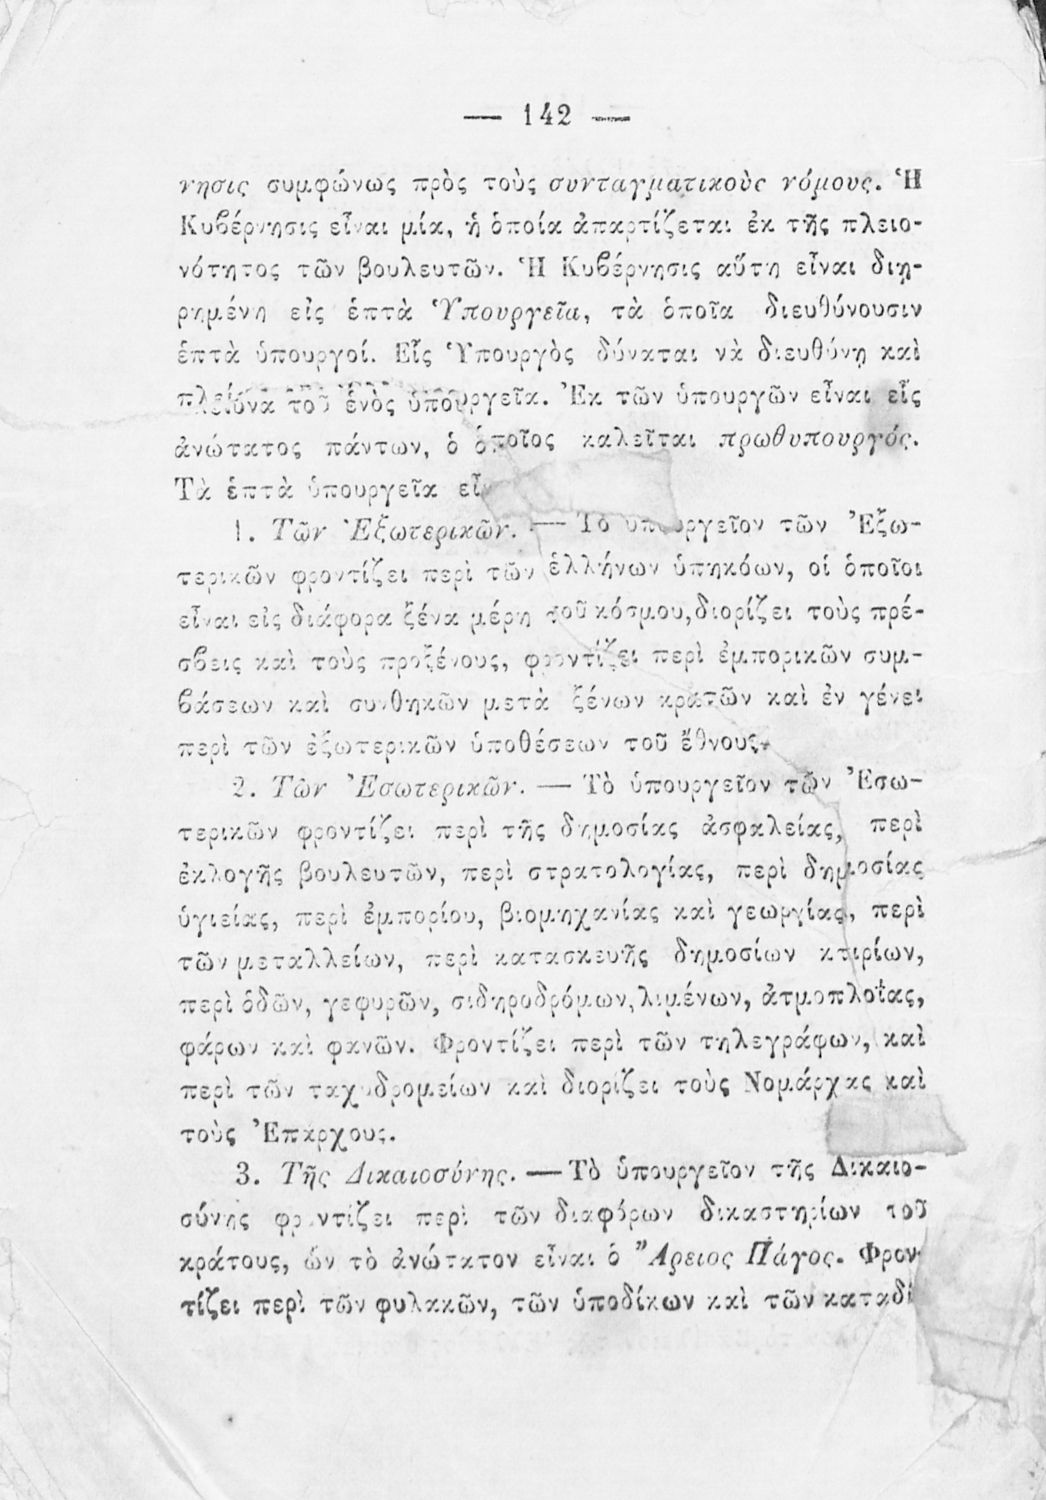 — 142 —
νησις συμφώνως πρὸς τοὺς συνταγματικοὺς νόμους. Ἡ
Κυβέρνησις εἶναι μία, ἡ ὁποία ἀπαρτίζεται ἐκ τῆς πλειο-
νότητος τῶν βουλευτῶν. Ἡ Κυβέρνησις αὕτη εἶναι διῃ-
ρημένη εἰς ἑπτὰ Ὑπουργεῖα, τὰ ὁποῖα διευθύνουσιν
ἑπτὰ ὑπουργοί. Εἷς Ὑπουργὸς δύναται νὰ διευθύνῃ καὶ
πλείονα τοῦ ἑνὸς ὑπουργεῖα. Ἐκ τῶν ὑπουργῶν εἶναι εἷς
ἀνώτατος πάντων, ὁ ὁποῖος καλεῖται πρωθυπουργός.
Τὰ ἑπτὰ ὑπουργεῖα
1. Τῶν Ἐξωτερικῶν. — Τὸ ὑπουργεῖον τῶν Ἐξω-
τερικῶν φροντίζει περὶ τῶν ἑλλήνων ὑπηκόων, οἱ ὁποῖοι
εἶναι εἰς διάφορα ξένα μέρη τοῦ κόσμου, διορίζει τοὺς πρέ-
σβεις καὶ τοὺς προξένους, φροντίζει περὶ ἐμπορικῶν συμ-
βάσεων καὶ συνθηκῶν μετὰ ξένων κρατῶν καὶ ἐν γένει
περὶ τῶν ἐξωτερικῶν ὑποθέσεων τοῦ ἔθνους.
2. Τῶν Ἐσωτερικῶν. — Τὸ ὑπουργεῖον τῶν Ἐσω-
τερικῶν φροντίζει περὶ τῆς δημοσίας ἀσφαλείας, περὶ
ἐκλογῆς βουλευτῶν, περὶ στρατολογίας, περὶ δημοσίας
ὑγιείας, περὶ ἐμπορίου, βιομηχανίας καὶ γεωργίας, περὶ
τῶν μεταλλείων, περὶ κατασκευῆς δημοσίων κτιρίων,
περὶ ὁδῶν, γεφυρῶν, σιδηροδρόμων, λιμένων, ἀτμοπλοΐας,
φάρων καὶ φανῶν. Φροντίζει περὶ τῶν τηλεγράφων, καὶ
περὶ τῶν ταχυδρομείων καὶ διορίζει τοὺς Νομάρχας καὶ
τοὺς Ἐπάρχους.
3. Τῆς Δικαιοσύνης. — Τὸ ὑπουργεῖον τῆς Δικαιο-
σύνης φροντίζει περὶ τῶν διαφόρων δικαστηρίων τοῦ
κράτους, ὧν τὸ ἀνώτατον εἶναι ὁ Ἄρειος Πάγος. Φρον-
τίζει περὶ τῶν φυλακῶν, τῶν ὑποδίκων καὶ τῶν καταδί